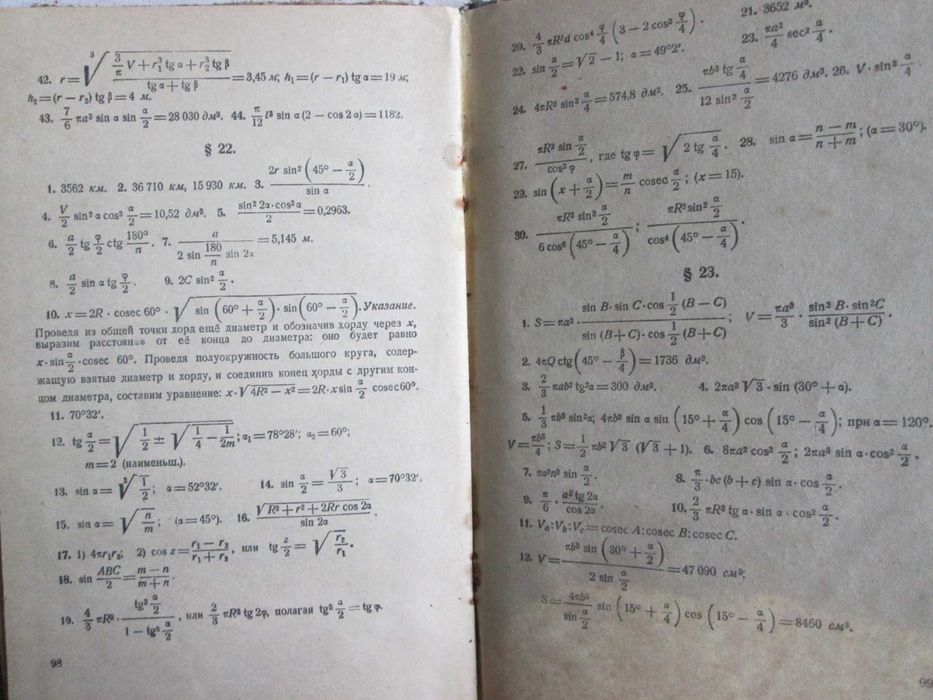 42. r = ∛((3/π V + r₁³ tg α + r₂³ tg β)/(tg α + tg β)) = 3,45 м; h₁ = (r − r₁) tg α = 19 м;
h₂ = (r − r₂) tg β = 4 м.
43. 7/6 πa³ sin α sin α/2 = 28 030 дм³. 44. π/12 l³ sin α (2 − cos 2α) = 1182.
§ 22.
1. 3562 км. 2. 36 710 км, 15 930 км. 3. 2r sin² (45° − α/2) / sin α.
4. V/2 sin² α cos² α/2 = 10,52 дм³. 5. sin² 2α · cos² α / 2 = 0,2963.
6. a/2 tg φ/2 ctg 180°/n. 7. a / (2 sin 180/n sin 2α) = 5,145 м.
8. a/2 sin α tg φ/2. 9. 2C sin² φ/2.
10. x = 2R · cosec 60° · √(sin (60° + α/2) · sin (60° − α/2)). Указание.
Проведя из общей точки хорд ещё диаметр и обозначив хорду через x,
выразим расстояние от её конца до диаметра: оно будет равно
x · sin α/2 · cosec 60°. Проведя полуокружность большого круга, содер-
жащую взятые диаметр и хорду, и соединив конец хорды с другим кон-
цом диаметра, составим уравнение: x · √(4R² − x²) = 2R · x sin α/2 cosec 60°.
11. 70°32′.
12. tg α/2 = √(1/2 ± √(1/4 − 1/2m)); α₁ = 78°28′; α₂ = 60°;
m = 2 (наименьш.).
13. sin α = ∛(1/2); α = 52°32′. 14. sin α/2 = √3/3; α = 70°32′.
15. sin α = √(n/m); (α = 45°). 16. √(R² + r² + 2Rr cos 2α) / sin 2α.
17. 1) 4πr₁r₂; 2) cos z = (r₁ − r₂)/(r₁ + r₂), или tg z/2 = √(r₂/r₁).
18. sin ABC/2 = (m − n)/(m + n).
19. 4/3 πR³ · tg³ α/2 / (1 − tg⁶ α/2), или 2/3 πR³ tg 2φ, полагая tg³ α/2 = tg φ.
98
20. 4/3 πR²d cos⁴ φ/4 (3 − 2 cos² φ/4). 21. 3652 м³.
22. sin α/2 = √2 − 1; α = 49°2′. 23. πa²/4 sec² α/4.
24. 4πR² sin² α/4 = 574,8 дм². 25. πb³ tg α/4 / (12 sin² α/2) = 4276 дм³. 26. V · sin² α/4
27. πR² sin α/2 / cos² φ, где tg φ = √(2 tg α/4). 28. sin α = (n − m)/(n + m); (α = 30°).
29. sin (x + α/2) = m/n cosec α/2; (x = 15).
30. πR³ sin³ α/2 / (6 cos⁶ (45° − α/4)); πR² sin² α/2 / cos⁴ (45° − α/4).
§ 23.
1. S = πa² · sin B · sin C · cos 1/2 (B − C) / (sin (B + C) · cos 1/2 (B + C)); V = πa³/3 · sin² B · sin² C / sin² (B + C).
2. 4πQ ctg (45° − β/4) = 1736 дм².
3. 2/3 πab² tg² α = 300 дм³. 4. 2πa² √3 · sin (30° + α).
5. 1/3 πb³ sin² α; 4πb² sin α sin (15° + α/4) cos (15° − α/4); при α = 120°.
V = πb³/4; S = 1/2 πb² √3 (√3 + 1). 6. 8πa² cos² α/2; 2πa³ sin α · cos² α/2.
7. πa²n² sin α/2. 8. π/3 · bc (b + c) sin α · cos α/2.
9. π/6 · a³ tg 2α / cos 2α. 10. 2/3 πR³ tg α · sin α · cos² α/2.
11. Vₐ : V_b : V_c = cosec A : cosec B : cosec C.
12. V = πb³ sin (30° + α/2) / (2 sin α/2) = 47 090 см³;
S = 4πb² / sin α/2 · sin (15° + α/4) cos (15° − α/4) = 8460 см².
99